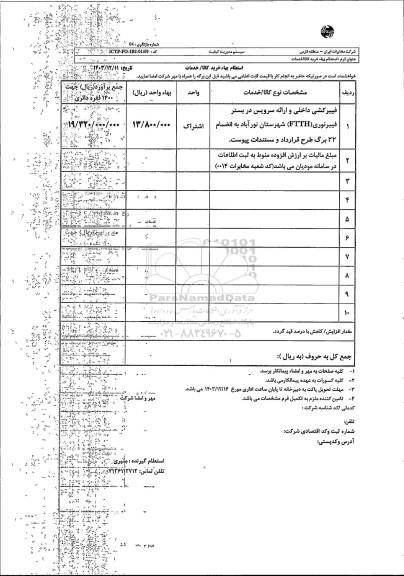 شماره بازنگری: 04
شرکت مخابرات ایران - منطقه فارس
سیستم مدیریت کیفیت
کد: ICTP-FO-182-01/00
عنوان فرم: استعلام بهاء خرید کالا/خدمات
استعلام بهاء خرید کالا/ خدمات
تاریخ: ۱۴۰۳/۱۲/۱۱
خواهشمند است در صورتیکه حاضر به انجام کار با قیمت ثابت اعلامی می باشید ذیل این برگه را همراه با مهر شرکت امضا نمایید.
ردیف
مشخصات نوع کالا/خدمات
واحد
بهاء واحد (ریال)
جمع برآورد(ریال) جهت ۱۴۰۰ فقره دائری
۱
فیبرکشی داخلی و ارائه سرویس در بستر
فیبرنوری(FTTH) شهرستان نورآباد به انضمام
۲۲ برگ طرح قرارداد و مستندات پیوست.
اشتراک
۱۳/۸۰۰/۰۰۰
۱۹/۳۲۰/۰۰۰/۰۰۰
۲
مبلغ مالیات بر ارزش افزوده منوط به ثبت اطلاعات
در سامانه مودیان می باشد(کد شعبه مخابرات ۰۰۱۴)
۳
۴
۵
۶
۷
۸
۹
۱۰
ParsNamadData
۰۲۱-۸۸۳۴۹۶۷۰-۵
مقدار افزایش/ کاهش با درصد قید گردد.
جمع کل به حروف (به ریال):
۱- کلیه صفحات به مهر و امضاء پیمانکار برسد.
۲- کلیه کسورات به عهده پیمانکار می باشد.
۳- مهلت تحویل پاکت به دبیرخانه تا پایان ساعت اداری مورخ ۱۴۰۳/۱۲/۱۶ می باشد.
۴- تامین کننده ملزم به تکمیل فرم مشخصات می باشد.
مهر و امضا شرکت
کدملی /کد شناسه شرکت:
تلفن:
شماره ثبت وکد اقتصادی شرکت:
آدرس وکدپستی:
استعلام گیرنده:
تلفن تماس: